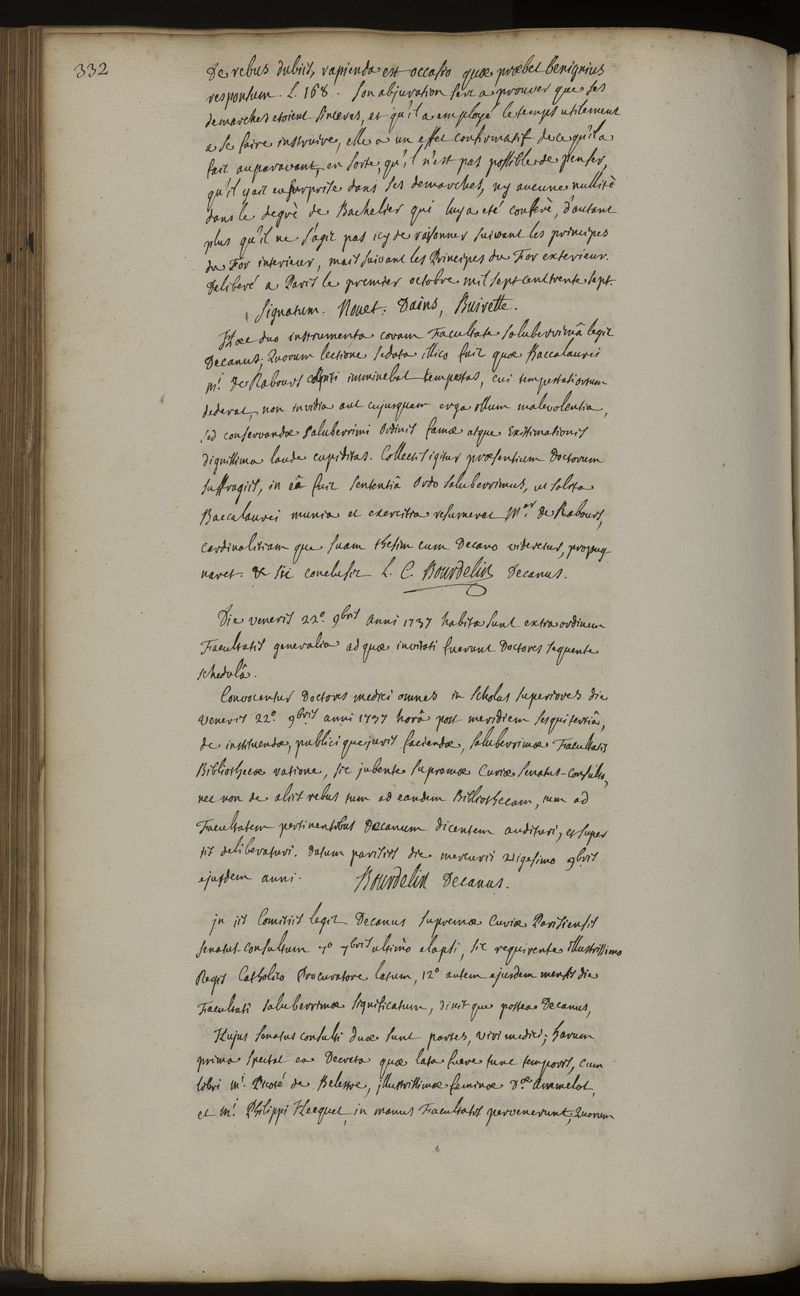 332
De rebus dubiis, rapienda est occasio quæ præbet benignius
responsum. L. 168. Son abjuration sert a prouver que ses
demarches etoient sinceres, et qu'il a employé le temps utilement
a se faire instruire, elle a un effet confirmatif de ce qu'il a
fait auparavant, en sorte, qu'il n'est pas possible de penser,
qu'il y ait eu surprise dans ses demarches, ny aucune nullité
dans le degré de Bachelier qui luy a eté conferé, d'autant
plus qu'il ne s'agit pas icy de raisonner suivant les principes
du For interieur, mais suivant les Principes du For exterieur.
Deliberé a Paris le premier octobre mil sept cent trente sept.
Signatum. Nouet. Dains, Buirette.
Hæc duo instrumenta coram Facultate saluberrimâ legit
Decanus; Quorum lectione sedata illico fuit quæ Baccalaurei
M.i De Rabours capiti imminebat tempestas, cui tempestati ortum
dederat, non invidia aut cujusquam erga illum malevolentia,
sed conservandæ saluberrimi Ordinis famæ atque Existimationis
dignissima laude cupiditas. Collectis igitur præsentium Doctorum
suffragiis, in eâ fuit sententiâ Ordo saluberrimus, ut solita
Baccalaurei munia et exercitia resumeret M.er de Rabours,
cardinalitiam que suam thesim cum Decano videretur, propug-
naret. & sic conclusit L. C. Bourdelin Decanus.
Die veneris 22.ª 9bris anni 1737 habita sunt extra ordinem
Facultatis generalia ad quæ invitati fuerunt Doctores sequente
schedulâ.
Convocentur Doctores medici omnes in scholas superiores die
veneris 22.ª 9bris anni 1737 horâ post meridiem sesquitertiâ,
de instituendæ, publicique juris faciendæ, saluberrimæ Facultatis
Bibliothecæ ratione, sic jubente supremæ Curiæ Senatus-Consulto,
nec non de aliis rebus tum ad eandem Bibliothecam, tum ad
Facultatem pertinentibus Decanum dicentem audituri, et super
iis deliberaturi. Datum parisiis die mercurii vigesimo 9bris
ejusdem anni. Bourdelin Decanus.
in iis Comitiis legit Decanus supremæ Curiæ Parisiensis
senatus-consultum 7º 7bris ultimo elapsi, sic requirente illustrissimo
Regis Catholico Procuratore latum, 12º autem ejusdem mensis die
Facultati saluberrimæ significatum, dixit que postea Decanus,
Hujus senatus consulti duæ sunt partes, viri medici; harum
prima spectat ea Decreta quæ lata fuere tunc temporis, cum
libri M.i Picoté de Belestre, illustrissimæ feminæ D.æ Ammelot,
et M.i Philippi Hecquet, in manus Facultatis pervenerunt; Quorum